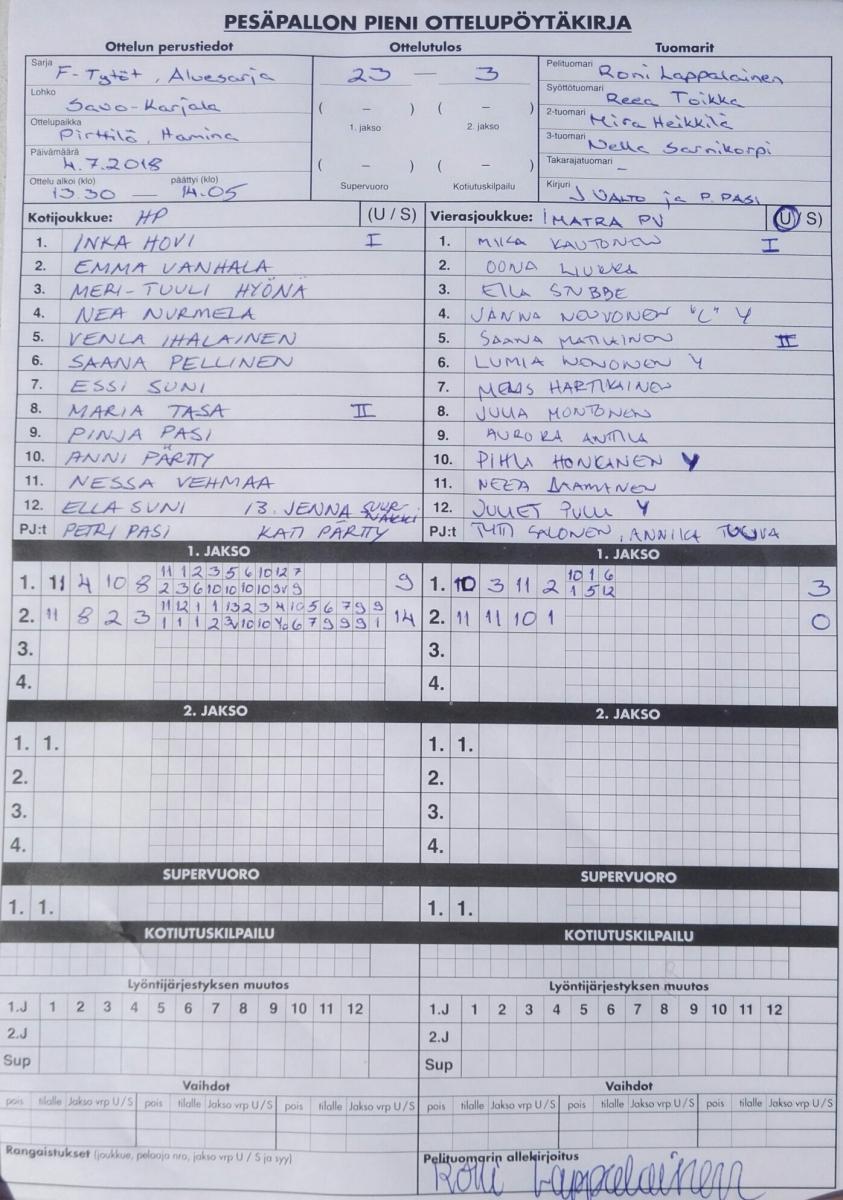 PESÄPALLON PIENI OTTELUPÖYTÄKIRJA
Ottelun perustiedot Ottelutulos Tuomarit
Sarja F-Tytöt, Aluesarja
Lohko Savo-Karjala
Ottelupaikka Pirttilä, Hamina
Päivämäärä 4.7.2018
Ottelu alkoi (klo) päättyi (klo)
13.30 — 14.05
23 — 3
( – ) ( – )
1. jakso 2. jakso
( – ) ( – )
Supervuoro Kotiutuskilpailu
Pelituomari Roni Lappalainen
Syöttötuomari Reea Toikka
2-tuomari Mira Heikkilä
3-tuomari Nella Sarnikorpi
Takarajatuomari –
Kirjuri J VALTO ja P. PASI
Kotijoukkue: HP (U / S)
1. INKA HOVI I
2. EMMA VANHALA
3. MERI-TUULI HYÖNÄ
4. NEA NURMELA
5. VENLA IHALAINEN
6. SAANA PELLINEN
7. ESSI SUNI
8. MARIA TASA II
9. PINJA PASI
10. ANNI PÄRTTY
11. NESSA VEHMAA
12. ELLA SUNI 13. JENNA SUUR-NÄKKI
PJ:t PETRI PASI KATI PÄRTTY
Vierasjoukkue: IMATRA PV (U / S)
1. KAUTONEN I
2. OONA
3. ELLA STUBBE
4. JANNA NOUVONEN "C" Y
5. SAANA MATIKAINEN II
6. LUMIA Y
7. HARTIKAINEN
8. JULIA MONTONEN
9. AURORA ANTTILA
10. PIHLA HONKANEN Y
11. NEEA
12. JULIET PULLI Y
PJ:t TUTI SALONEN, ANNIKA
1. JAKSO
1. 11 4 10 8 11 1 2 3 5 6 10 12 7 9
2 3 6 10 10 10 10 9
2. 11 8 2 3 11 12 1 1 13 2 3 4 10 5 6 7 9 9 14
1 1 1 2 3 10 10 6 7 9 9 9 1
3.
4.
1. JAKSO
1. 10 3 11 2 10 1 6 3
1 5 12
2. 11 11 10 1 0
3.
4.
2. JAKSO
1. 1.
2.
3.
4.
2. JAKSO
1. 1.
2.
3.
4.
SUPERVUORO
1. 1.
SUPERVUORO
1. 1.
KOTIUTUSKILPAILU
KOTIUTUSKILPAILU
Lyöntijärjestyksen muutos
1.J 1 2 3 4 5 6 7 8 9 10 11 12
2.J
Sup
Lyöntijärjestyksen muutos
1.J 1 2 3 4 5 6 7 8 9 10 11 12
2.J
Sup
Vaihdot
pois tilalle Jakso vrp U/S pois tilalle Jakso vrp U/S pois tilalle Jakso vrp U/S
Vaihdot
pois tilalle Jakso vrp U/S pois tilalle Jakso vrp U/S pois tilalle Jakso vrp U/S
Rangaistukset (joukkue, pelaaja nro, jakso vrp U / S ja syy)
Pelituomarin allekirjoitus
Roni Lappalainen